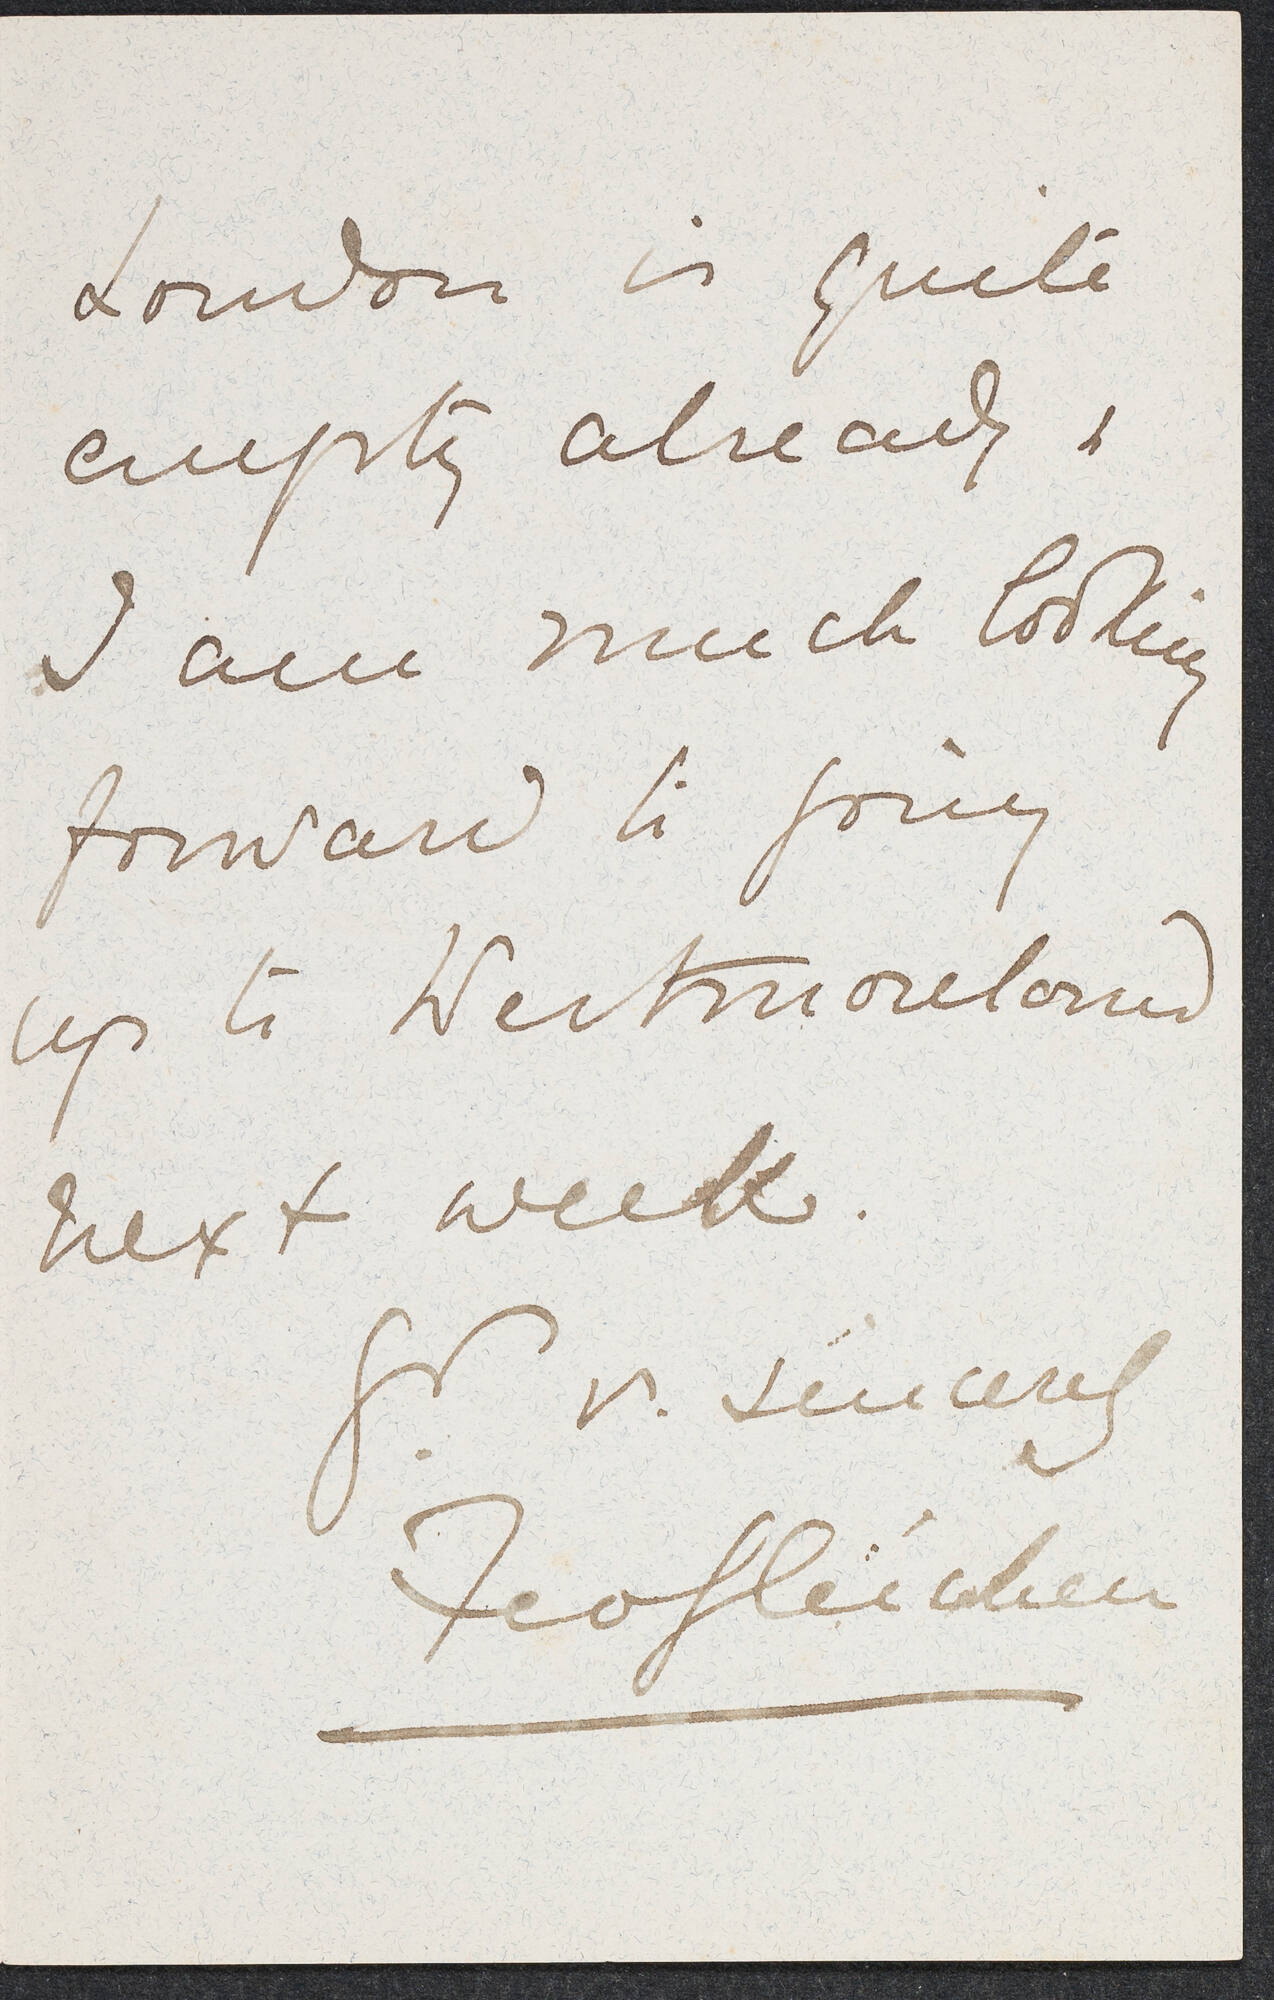 London is quite
empty already &
I am much looking
forward to going
up to Westmoreland
next week.
Yr. v. sincerely
Feo Gleichen